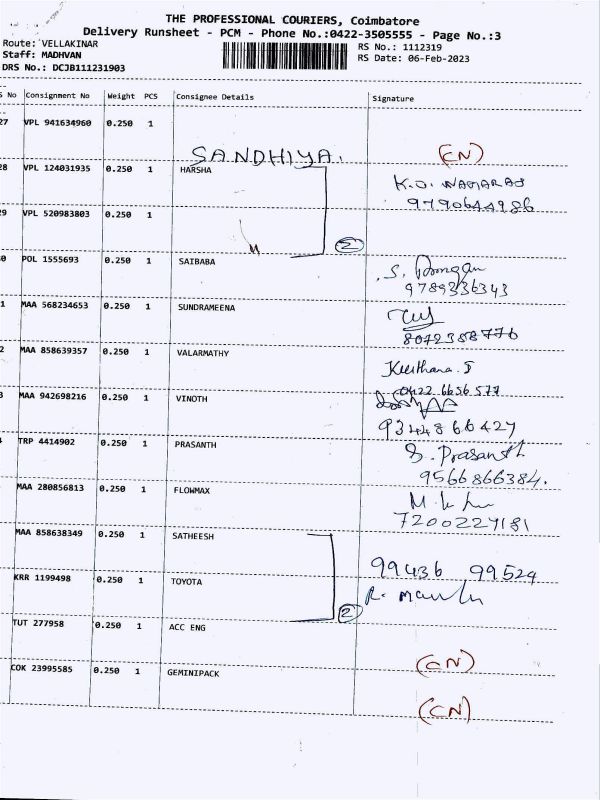 THE PROFESSIONAL COURIERS, Coimbatore
Delivery Runsheet - PCM - Phone No.:0422-3505555 - Page No.:3
Route: VELLAKINAR
RS No.: 1112319
Staff: MADHVAN
RS Date: 06-Feb-2023
DRS No.: DCJB111231903
S No Consignment No Weight PCS Consignee Details Signature
27 VPL 941634960 0.250 1
SANDHIYA. (CN)
28 VPL 124031935 0.250 1 HARSHA
K.O. NAGARAJ
9790644986
29 VPL 520983803 0.250 1
2
0 POL 1555693 0.250 1 SAIBABA
9789336343
1 MAA 568234653 0.250 1 SUNDRAMEENA
8072388776
2 MAA 858639357 0.250 1 VALARMATHY
Keerthana. S
0422 6656 577
3 MAA 942698216 0.250 1 VINOTH
9344866427
TRP 4414902 0.250 1 PRASANTH
S. Prasanth
9566866384.
MAA 280856813 0.250 1 FLOWMAX
7200227181
MAA 858638349 0.250 1 SATHEESH
99436 99524
KRR 1199498 0.250 1 TOYOTA
2
TUT 277958 0.250 1 ACC ENG
(CN)
COK 23995585 0.250 1 GEMINIPACK
(CN)